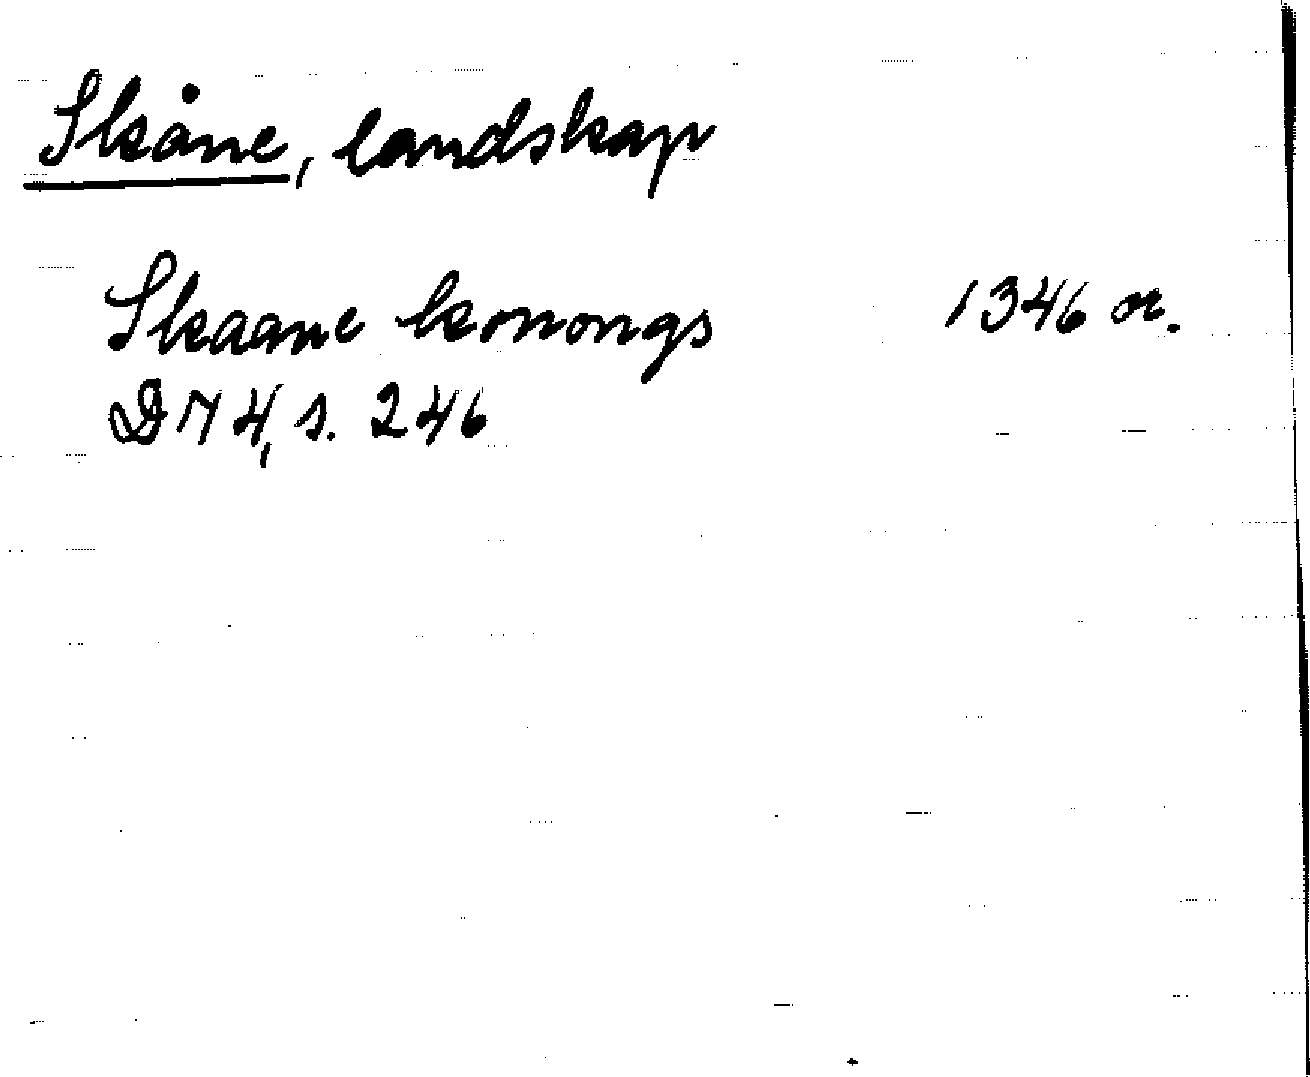 Skåne, landskap
Skaane konongs 1346 or.
DN 4, s. 246